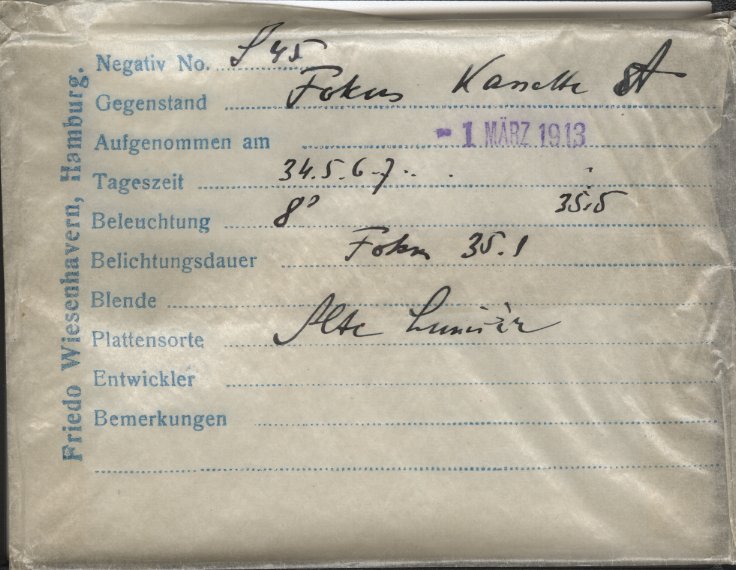 Friedo Wiesenhavern, Hamburg.
Negativ No. S 45
Gegenstand Fokus Kassette A
Aufgenommen am - 1 MÄRZ 1913
Tageszeit 34.5.6.7...
Beleuchtung 8s 35.5
Belichtungsdauer Fokus 35.1
Blende
Plattensorte Alte Lumière
Entwickler
Bemerkungen